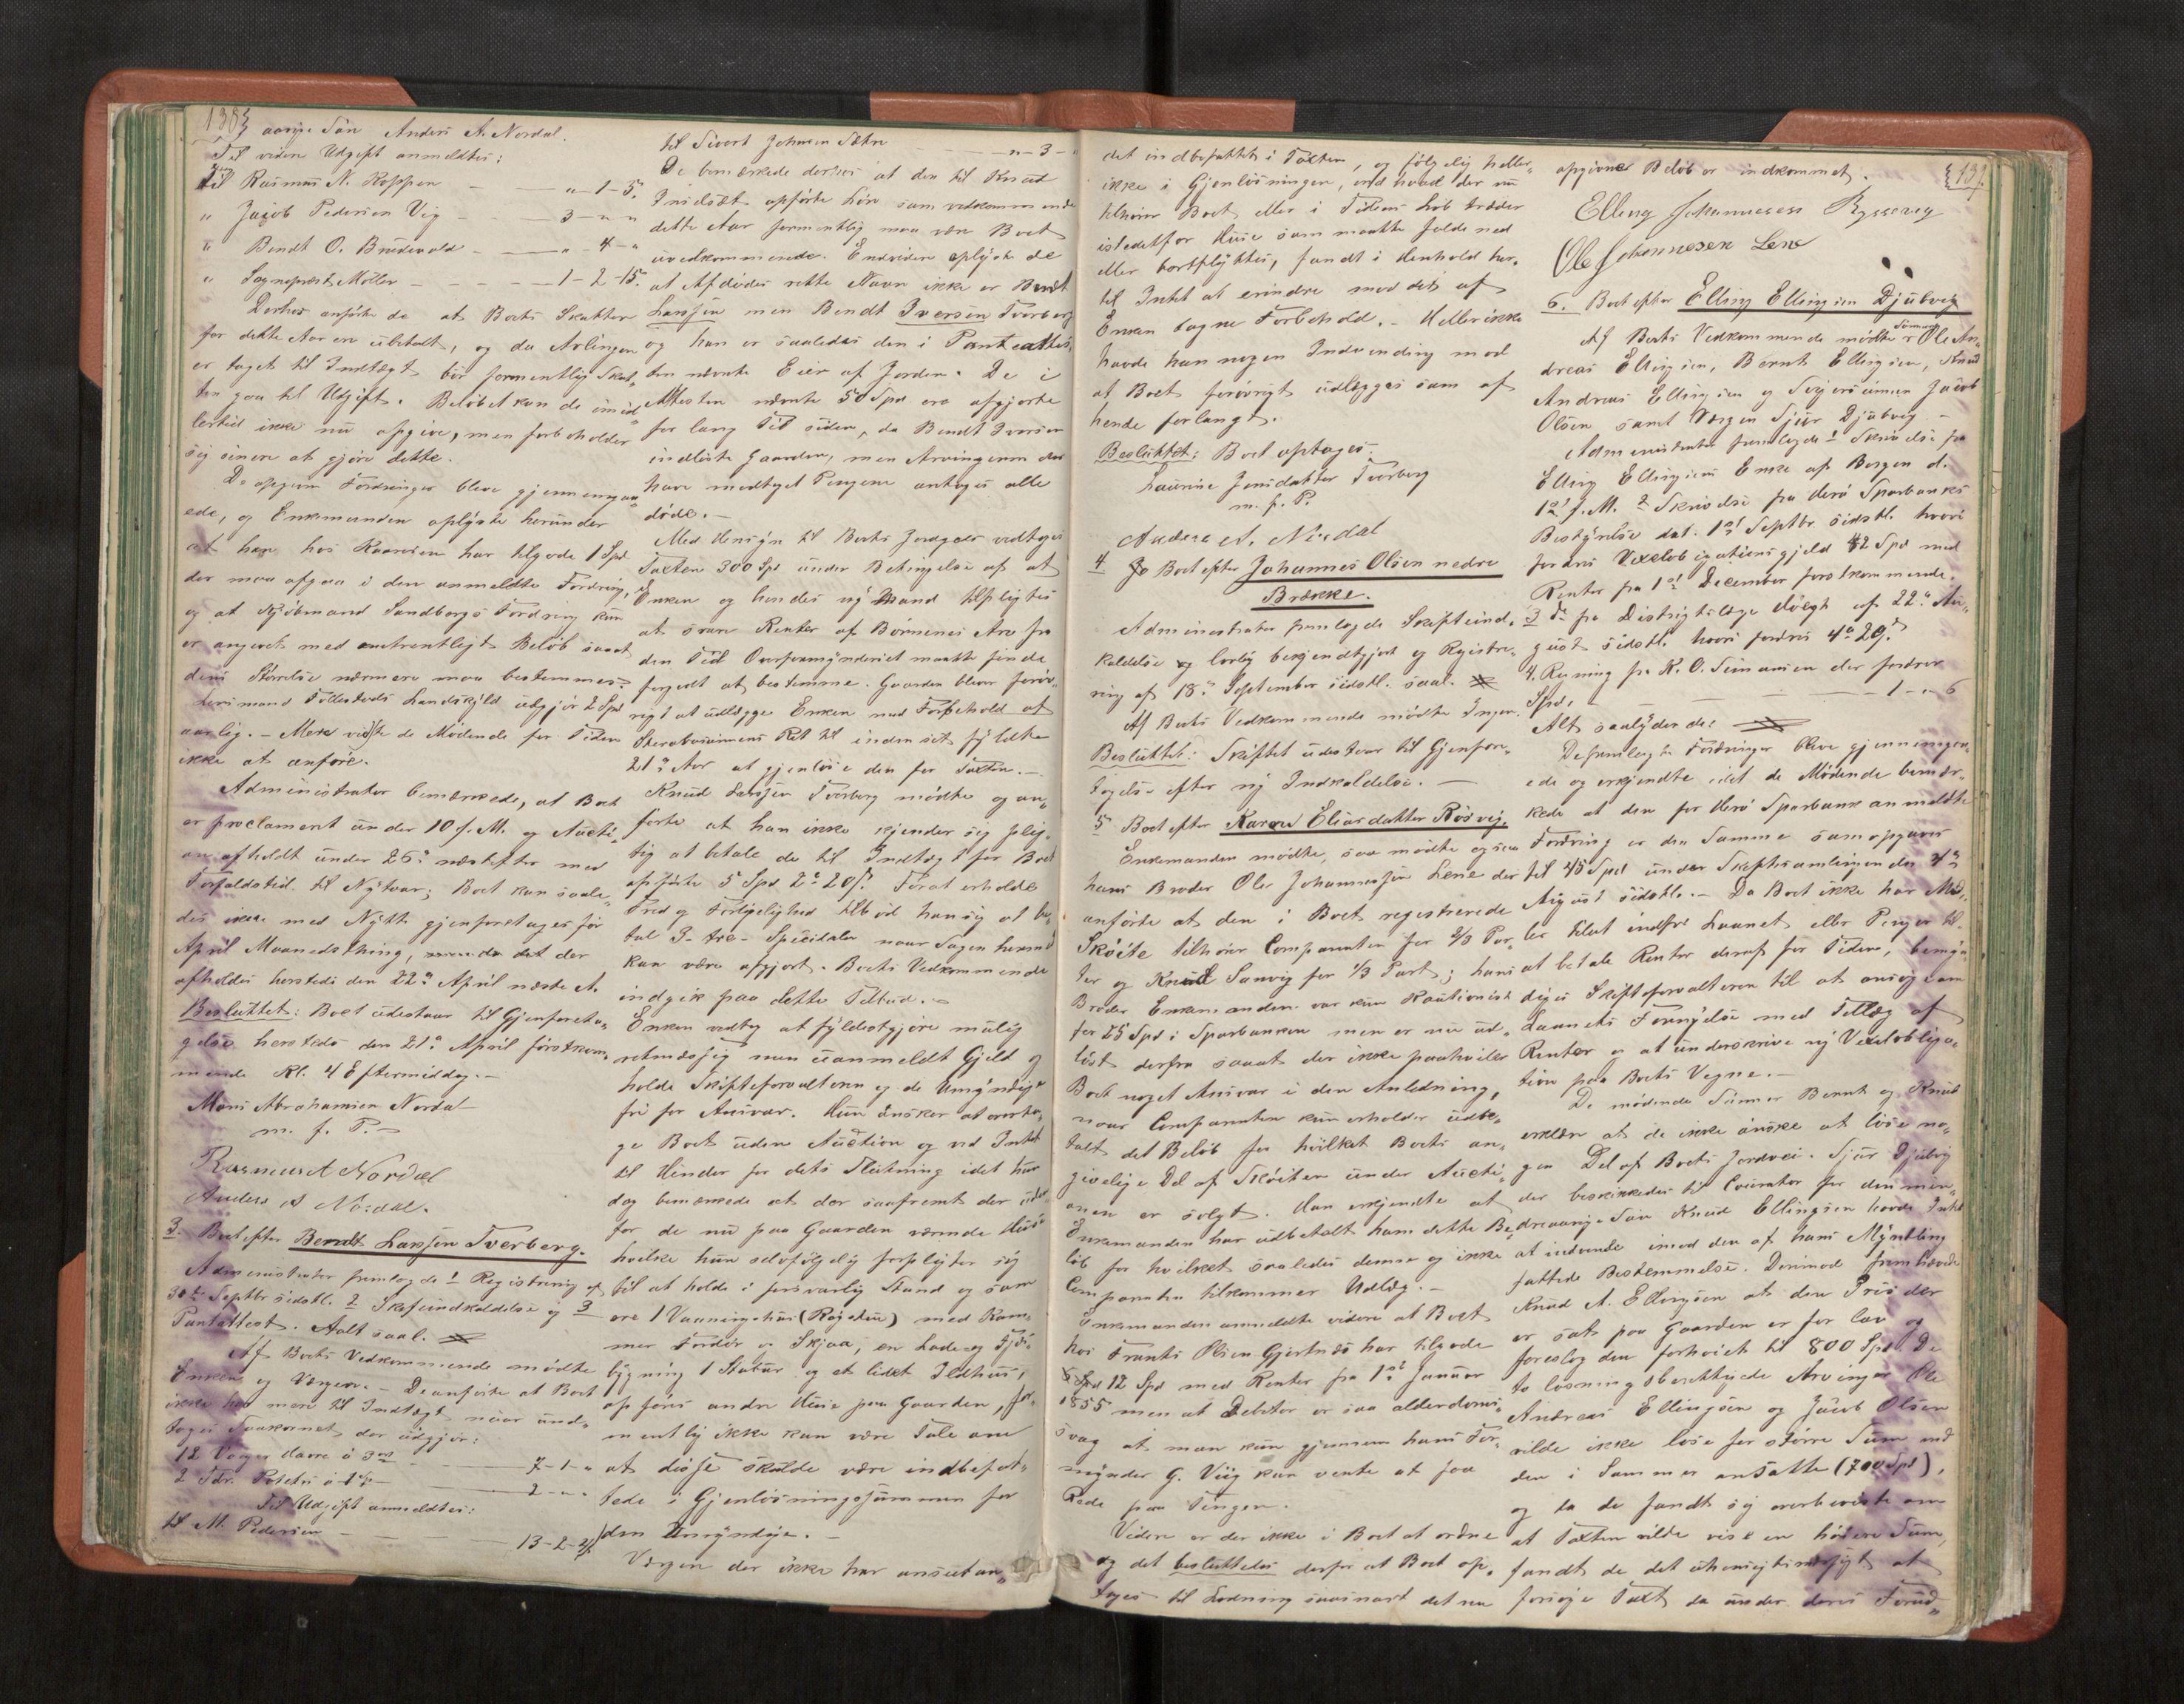 138
aarige Søn Anders A. Nordal.
Til videre Udgift anmeldtes:
Til Rasmus N. Koppen — " - 1 - 5
" Jacob Pedersen Vig — 3 - " - "
" Bendt O. Brudevold — " - 4 - "
" Sogneprest Møller — 1 - 2 - 15
Derhos anførte de at Boets Skatter
for dette Aar ere ubetalt, og da Avlingen
er taget til Indtægt bør formentlig Skat-
ten gaa til Udgift. Beløbet kan de imid-
lertid ikke nu opgive, men forbeholder
sig senere at gjøre dette.
De opgivne Fordringer bleve gjennemgaa-
ede, og Enkemanden oplyste herunder
at han hos Knardsen har tilgode 1 Spd
der maa afgaa i den anmeldte Fordring,
og at Kjøbmand Sandborgs Fordring kun
er angivet med omtrentligt Beløb saaat
dens Størrelse nærmere maa bestemmes.
Lensmand Follestads Landskyld udgjør 2 Spd
aarlig. — Mere vidste de Mødende for Tiden
ikke at anføre.
Administrator bemærkede, at Boet
er proclameret under 10 f. M. og Aucti-
on afholdt under 26de næstefter med
Forfaldstid til Nytaar; Boet kan saale-
des ikke med Nytte gjenforetages før
April Maanedsthing, da det der
afholdes herstedes den 22de April næste A.
Besluttet: Boet udestaar til Gjenforeta-
gelse herstedes den 21de April førstkom-
mende Kl. 4 Eftermiddag. —
Mons Abrahamsen Nordal
m. f. P.
Rasmus A Nordal
Anders A Nordal.
3. Boet efter Berndt Larssen Tverberg.
Administrator fremlagde 1 Registrering af
30te Septbr sidstl. 2 Skifteindkaldelse og 3
Pantattest. Aalt saal.
Af Boets Vedkommende mødte
Enken og Værgen. — De anførte at Boet
ikke har mere til Indtægt naar und-
tages Saakornet der udgjør:
12 Vøger Havre à 3 — 7 - 1 - "
2 Tdr. Poteter à 1 — 2 - " - "
Til Udgift anmeldtes:
til M. Pedersen — 13 - 2 - 21
til Sivert Johnsen Sætre — " - 3 - "
De bemærkede derhos at den til Knud
Insidsæt opførte Løn som vedkommende
dette Aar formentlig maa være Boet
uvedkommende. Endvidere oplyste de
at Afdødes rette Navn ikke er Berndt
Larssen men Bendt Iversen Tverberg
og han er saaledes den i Pantattes-
ten nævnte Eier af Jorden. De i
Attesten nævnte 50 Spd ere afgjorte
for lang Tid siden, da Bendt Iversen
indløste Gaarden, men Arvingerne der
have modtaget Pengene antages alle
døde. —
Med Hensyn til Boets Jordgods vedtoges
Taxten 300 Spd under Betingelse af at
Enken og hendes ny Mand tilpligtes
at svare Renter af Børnenes Arv fra
den Tid Overformynderiet maatte finde
forgodt at bestemme. Gaarden bliver forøv-
rigt at udlægge Enken med Forbehold af
Stervbosønnens Ret til inden sit fyldte
21de Aar at gjenløse den for Taxten. —
Knud Larssen Tverberg mødte og an-
førte at han ikke kjender sig plig-
tig at betale de til Indtægt for Boet
opførte 5 Spd 2 20 s. Forat erholde
Fred og Forligelighed tilbød han sig at be-
tale 3 - tre - Speciedaler naar Sagen hermed
kan være afgjort. Boets Vedkommende
indgik paa dette Tilbud. —
Enken vedtog at fyldestgjøre mulig
retmæssig men uanmeldt Gjeld og
holde Skifteforvalteren og de Umyndige
fri for Ansvar. Hun ønsker at overta-
ge Boet uden Auction og ved Intet
til Hinder for dets Slutning idet hun
dog bemærkede at der saafremt der uden
for de nu paa Gaarden værende Huse
hvilke hun selvfølgelig forpligter sig
til at holde i forsvarlig Stand og som
ere 1 Vaaningshus (Røgstue) med Kam-
mer Fordør og Skjaa, en Lade og Fjøs-
bygning 1 Stabur og et lidet Ildhus,
opføres andre Huse paa Gaarden, for-
mentlig ikke kan være Tale om
at disse skulde være indbefat-
tede i Gjenløsningssummen for
den Umyndige. —
Værgen der ikke har ansœet an-
139.
det indbefattet i Taxten, og følgelig heller
ikke i Gjenløsningen, end hvad der nu
tilhører Boet eller i Tidens Løb træder
istedetfor Huse som maatte falde ned
eller bortflyttes, fandt i Henhold her-
til Intet at erindre mod det af
Enken tagne Forbehold. — Heller ikke
havde han nogen Indvending mod
at Boet forøvrigt udlægges som af
hende forlangt.
Besluttet: Boet optages.
Laurine Jensdatter Tverberg
m. f. P.
Anders A. Nordal
4 I Boet efter Johannes Olsen nedre
Brække.
Administrator fremlagde Skifteind-
kaldelse og lovlig bekjendtgjort og Registre-
ring af 18de September sidstl. saal.
Af Boets Vedkommende mødte Ingen.
Besluttet: Skiftet udestaar til Gjenfore-
tagelse efter ny Indkaldelse. —
5 Boet efter Karen Eliasdatter Røsvig.
Enkemanden mødte, saa mødte ogsaa
hans Broder Ole Johannessen Lene der
anførte at den i Boet registrerede
Skøite tilhører Comparenten for 2/3 Par-
ter og Knud Sanvig for 1/3 Part; hans
Broder Enkemanden var kun Kautionist
for 25 Spd i Sparbanken men er nu ud-
løst derfra saaat der ikke paahviler
Boet noget Ansvar i den Anledning,
naar Comparenten kun erholder udbe-
talt det Beløb for hvilket Boets an-
givelige Del af Skøiten under Aucti-
onen er solgt. Han erkjendte at
Enkemanden har udbetalt ham dette Be-
løb for hvilket saaledes denne og ikke
Comparenten tilkommer Udlæg. —
Enkemanden anmeldte videre at Boet
hos Frants Olsen Gjertnæs har tilgode
12 Spd med Renter fra 1ste Januar
1855 men at Debitor er saa alderdoms-
svag at man kun gjennem hans For-
mynder G. Viig kan vente at faa
Rede paa Tingen.
Videre er der ikke i Boet at ordne
og det besluttedes derfor at Boet op-
tages til Lodning saasnart det nu
opgivne Beløb er indkommet.
Elling Johannesen Rysevig
Ole Johannesen Lene
6. Boet efter Elling Ellingsen Djubvig
Af Boets Vedkommende mødte Sønnerne Ole An-
dreas Ellingsen, Bernt Ellingsen, Knud
Andreas Ellingsen og Svigersønnen Jacob
Olsen samt Værgen Sjur Djubvig. —
Administrator fremlagde 1 Skrivelse fra
Elling Ellingsens Enke af Bergen d.
1ste f. M. 2 Skrivelse fra Herø Sparbanks
Bestyrelse dat. 1ste Septbr. sidstl. hvori
fordres Vexelobligationsgjeld 42 Spd med
Renter fra 1ste December førstkommende.
3 Do fra Distriktslæge Høegh af 22de Au-
gust sidstl. hvori fordres 4 20 s
4. Regning fra K. O. Simonsen der fordrer
Spd. — 1 - " - 6
Alt saalydende:
De fremlagte Fordringer bleve gjennemgaa-
ede og erkjendte idet de Mødende bemær-
kede at den for Herø Sparbank anmeldte
Fordring er den Samme som opgaves
til 45 Spd under Skiftesamlingen den 4de
August sidstl. — Da Boet ikke har Mid-
ler til at indfri Laanet eller Penge til
at betale Renter deraf for Tiden, bemyn-
diges Skifteforvalteren til at ansøge om
Laanets Fornyelse med Tillæg af
Renter og at underskrive ny Vexelobliga-
tion paa Boets Vegne. —
De mødende Sønner Bernt og Knud
erklære at de ikke ønske at løse no-
gen Del af Boets Jordvei. Sjur Djubvig
der beskikkedes til Courator for den min-
dreaarige Søn Knud Ellingsen havde Intet
at indvende imod den af hans Myndling
fattede Bestemmelse. Derimod fremhævede
Knud A. Ellingsen at den Pris der
er sat paa Gaarden er for lav og
foreslog den forhøiet til 800 Spd. De
to løsningsberettigede Arvinger Ole
Andreas Ellingsen og Jacob Olsen
vilde ikke løse for større Sum end
den i Sammen ansatte (700 Spd),
og da de fandt sig overbeviste om
at Taxten vilde vise en høiere Sum,
fandt de det uhensigtsmæssigt at
forsøge Taxt da under deres Forud-